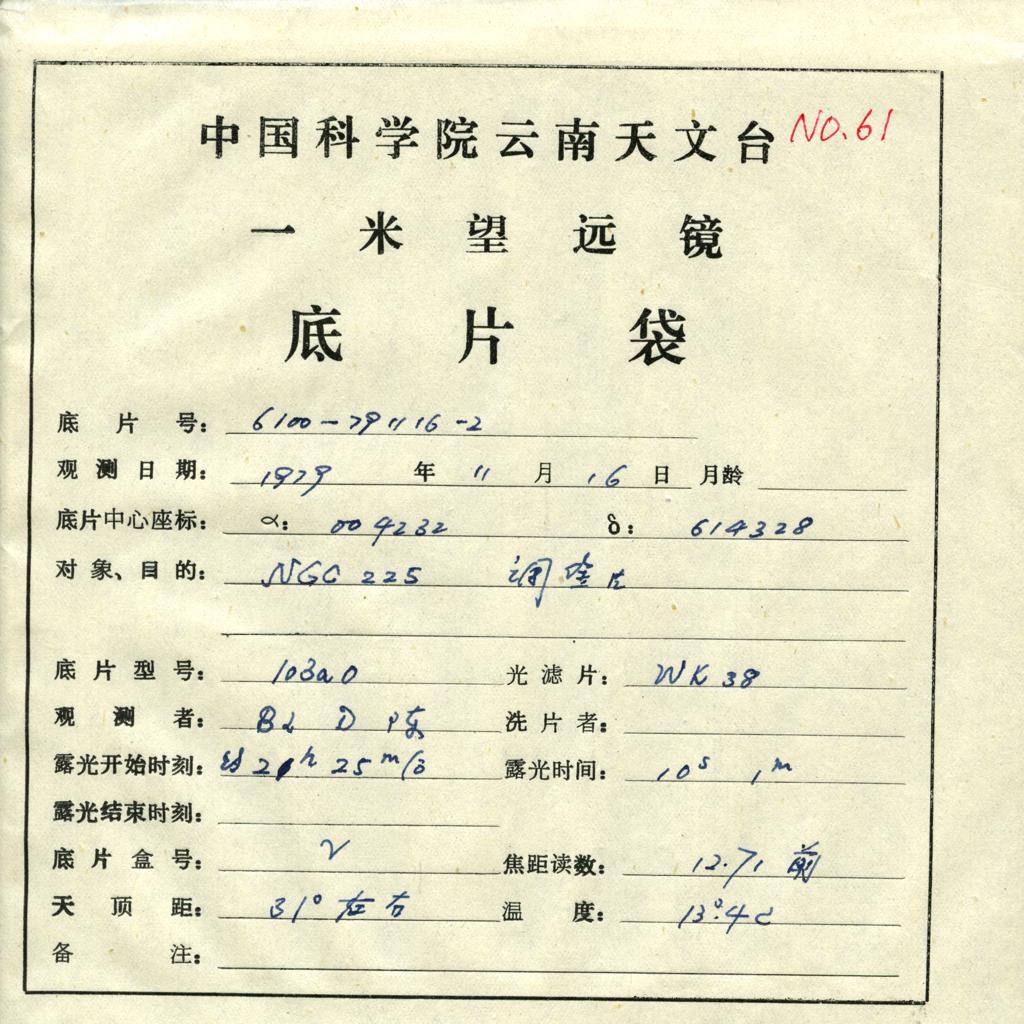 中国科学院云南天文台 NO.61
一米望远镜
底片袋
底片号: 6100-791116-2
观测日期: 1979 年 11 月 16 日 月龄
底片中心座标: α: 004232 δ: 614328
对象、目的: NGC 225 调 片
底片型号: 103aO 光滤片: WK 38
观测者: D 陈 洗片者:
露光开始时刻: 21h 25m 露光时间: 10s 1m
露光结束时刻:
底片盒号: 焦距读数: 12.71 前
天顶距: 31° 左右 温度: 13°.4c
备注: